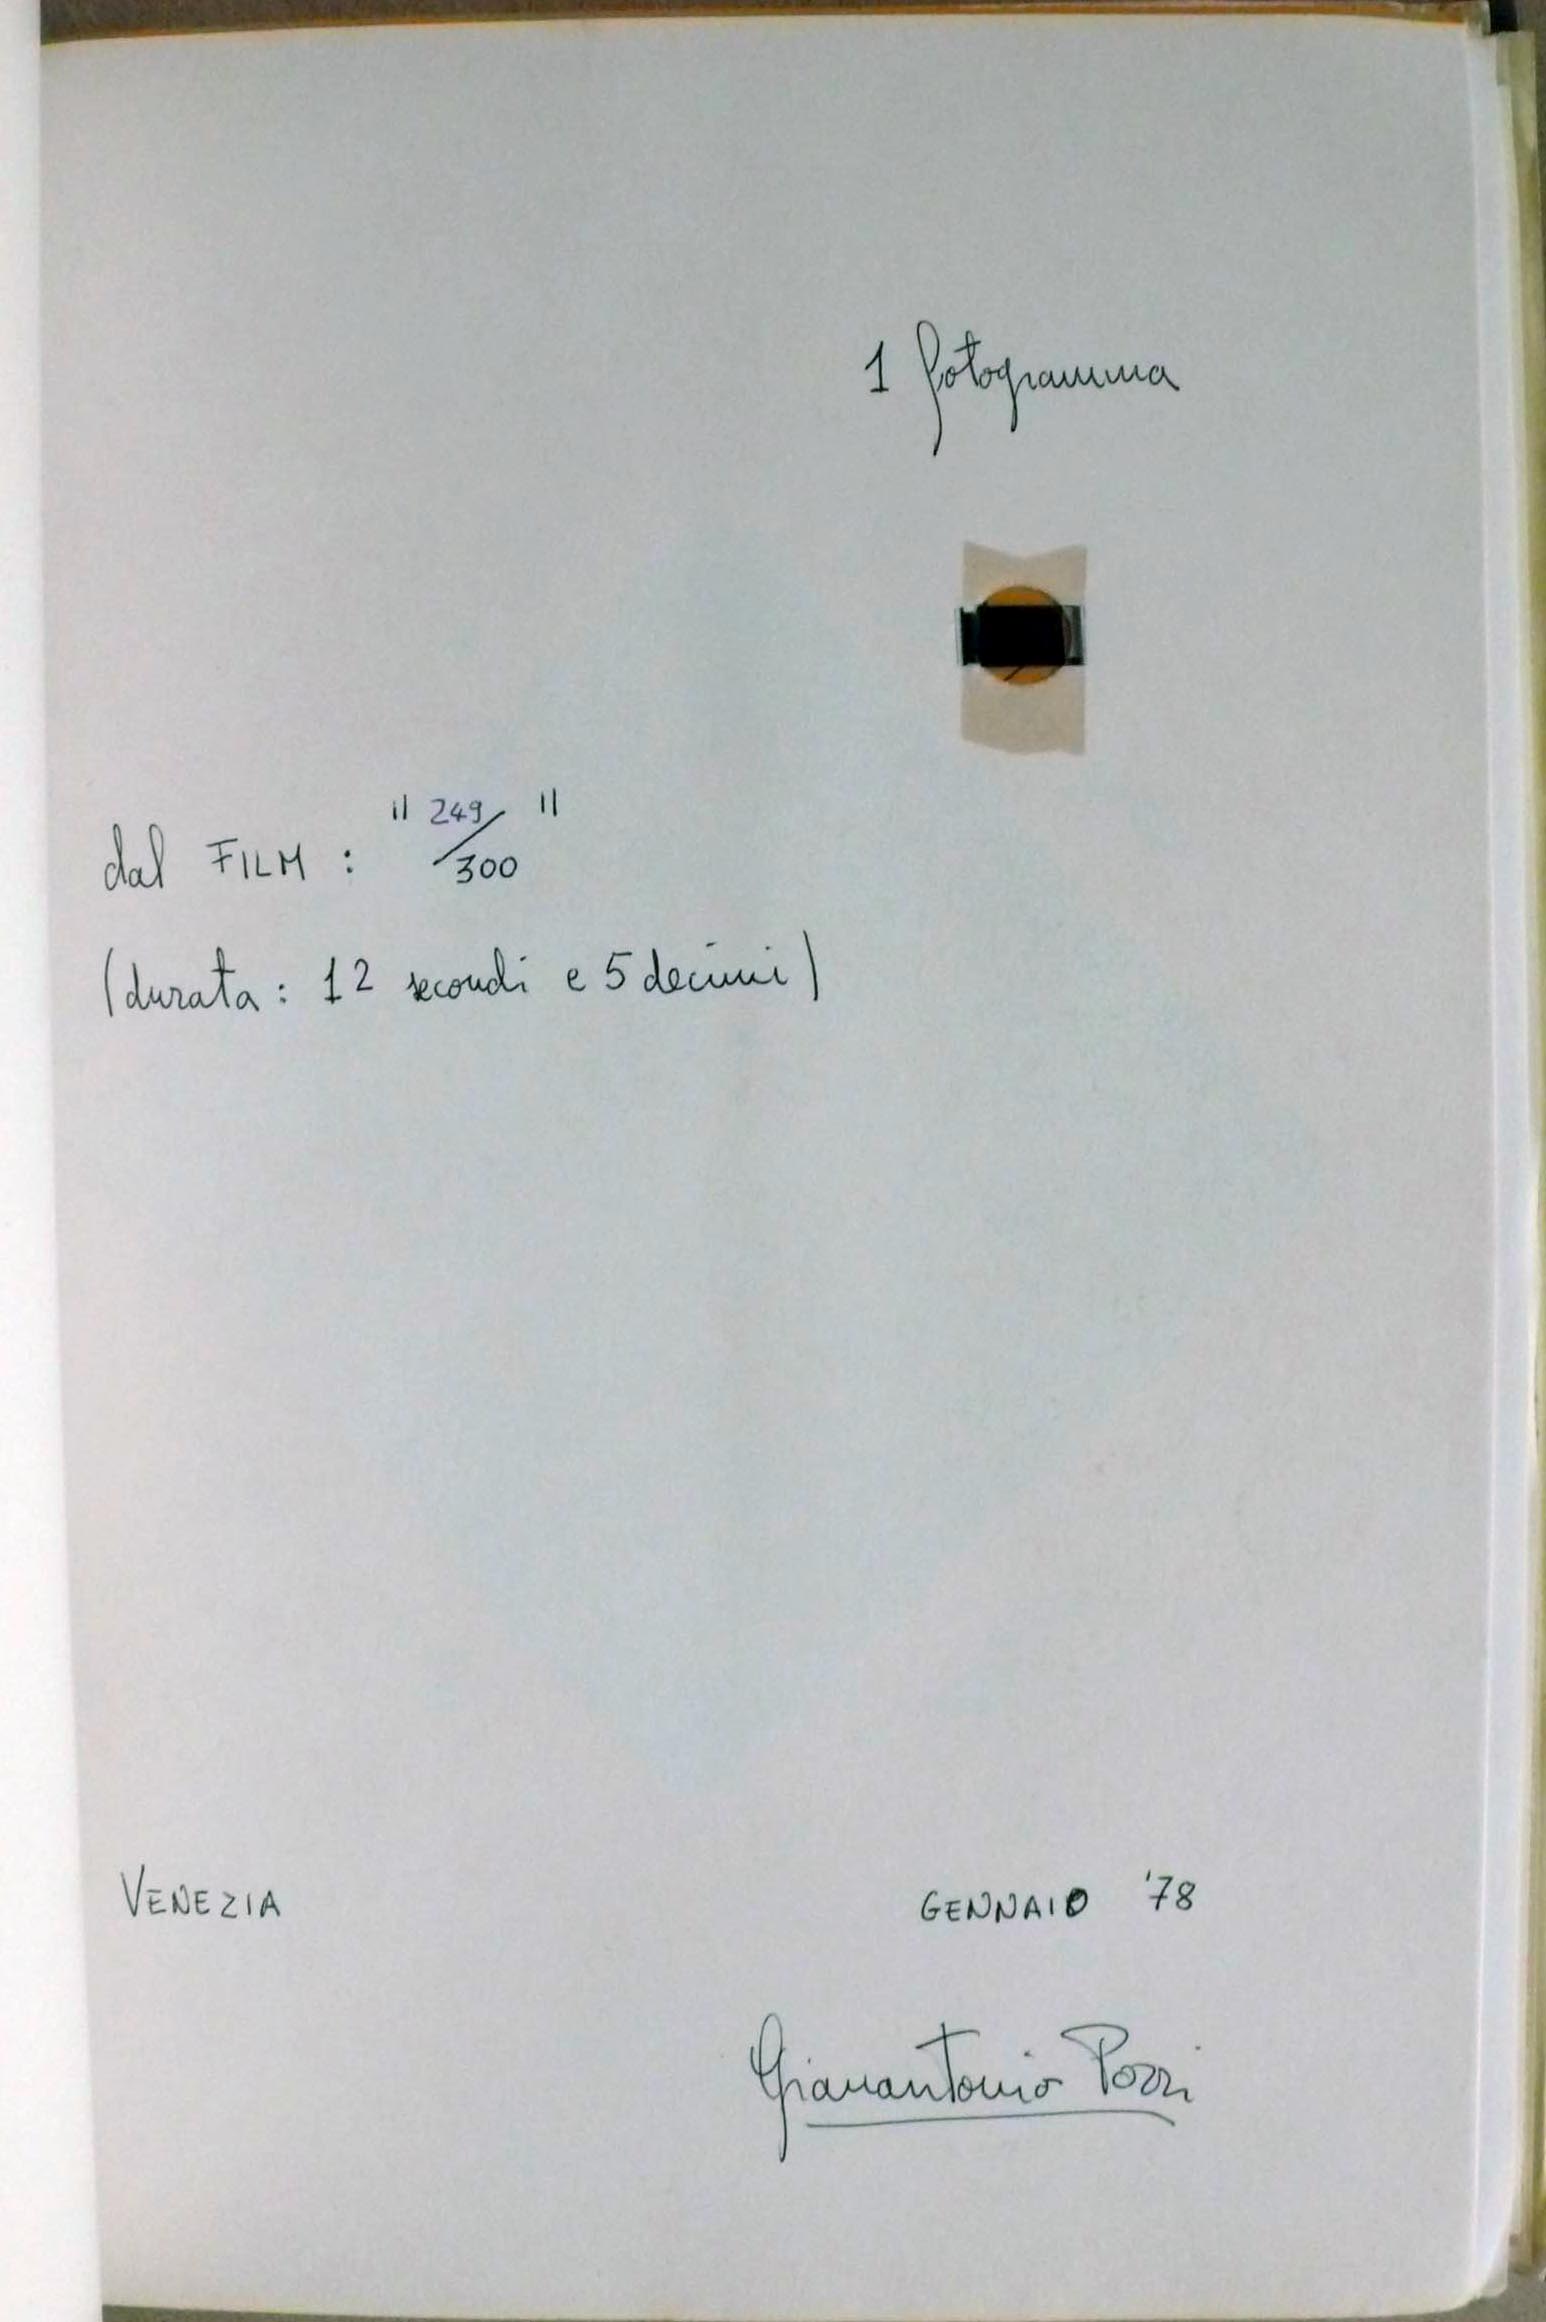 1 fotogramma
dal FILM : " 249/300 "
(durata : 12 secondi e 5 decimi)
VENEZIA GENNAIO '78
Gianantonio Pozzi